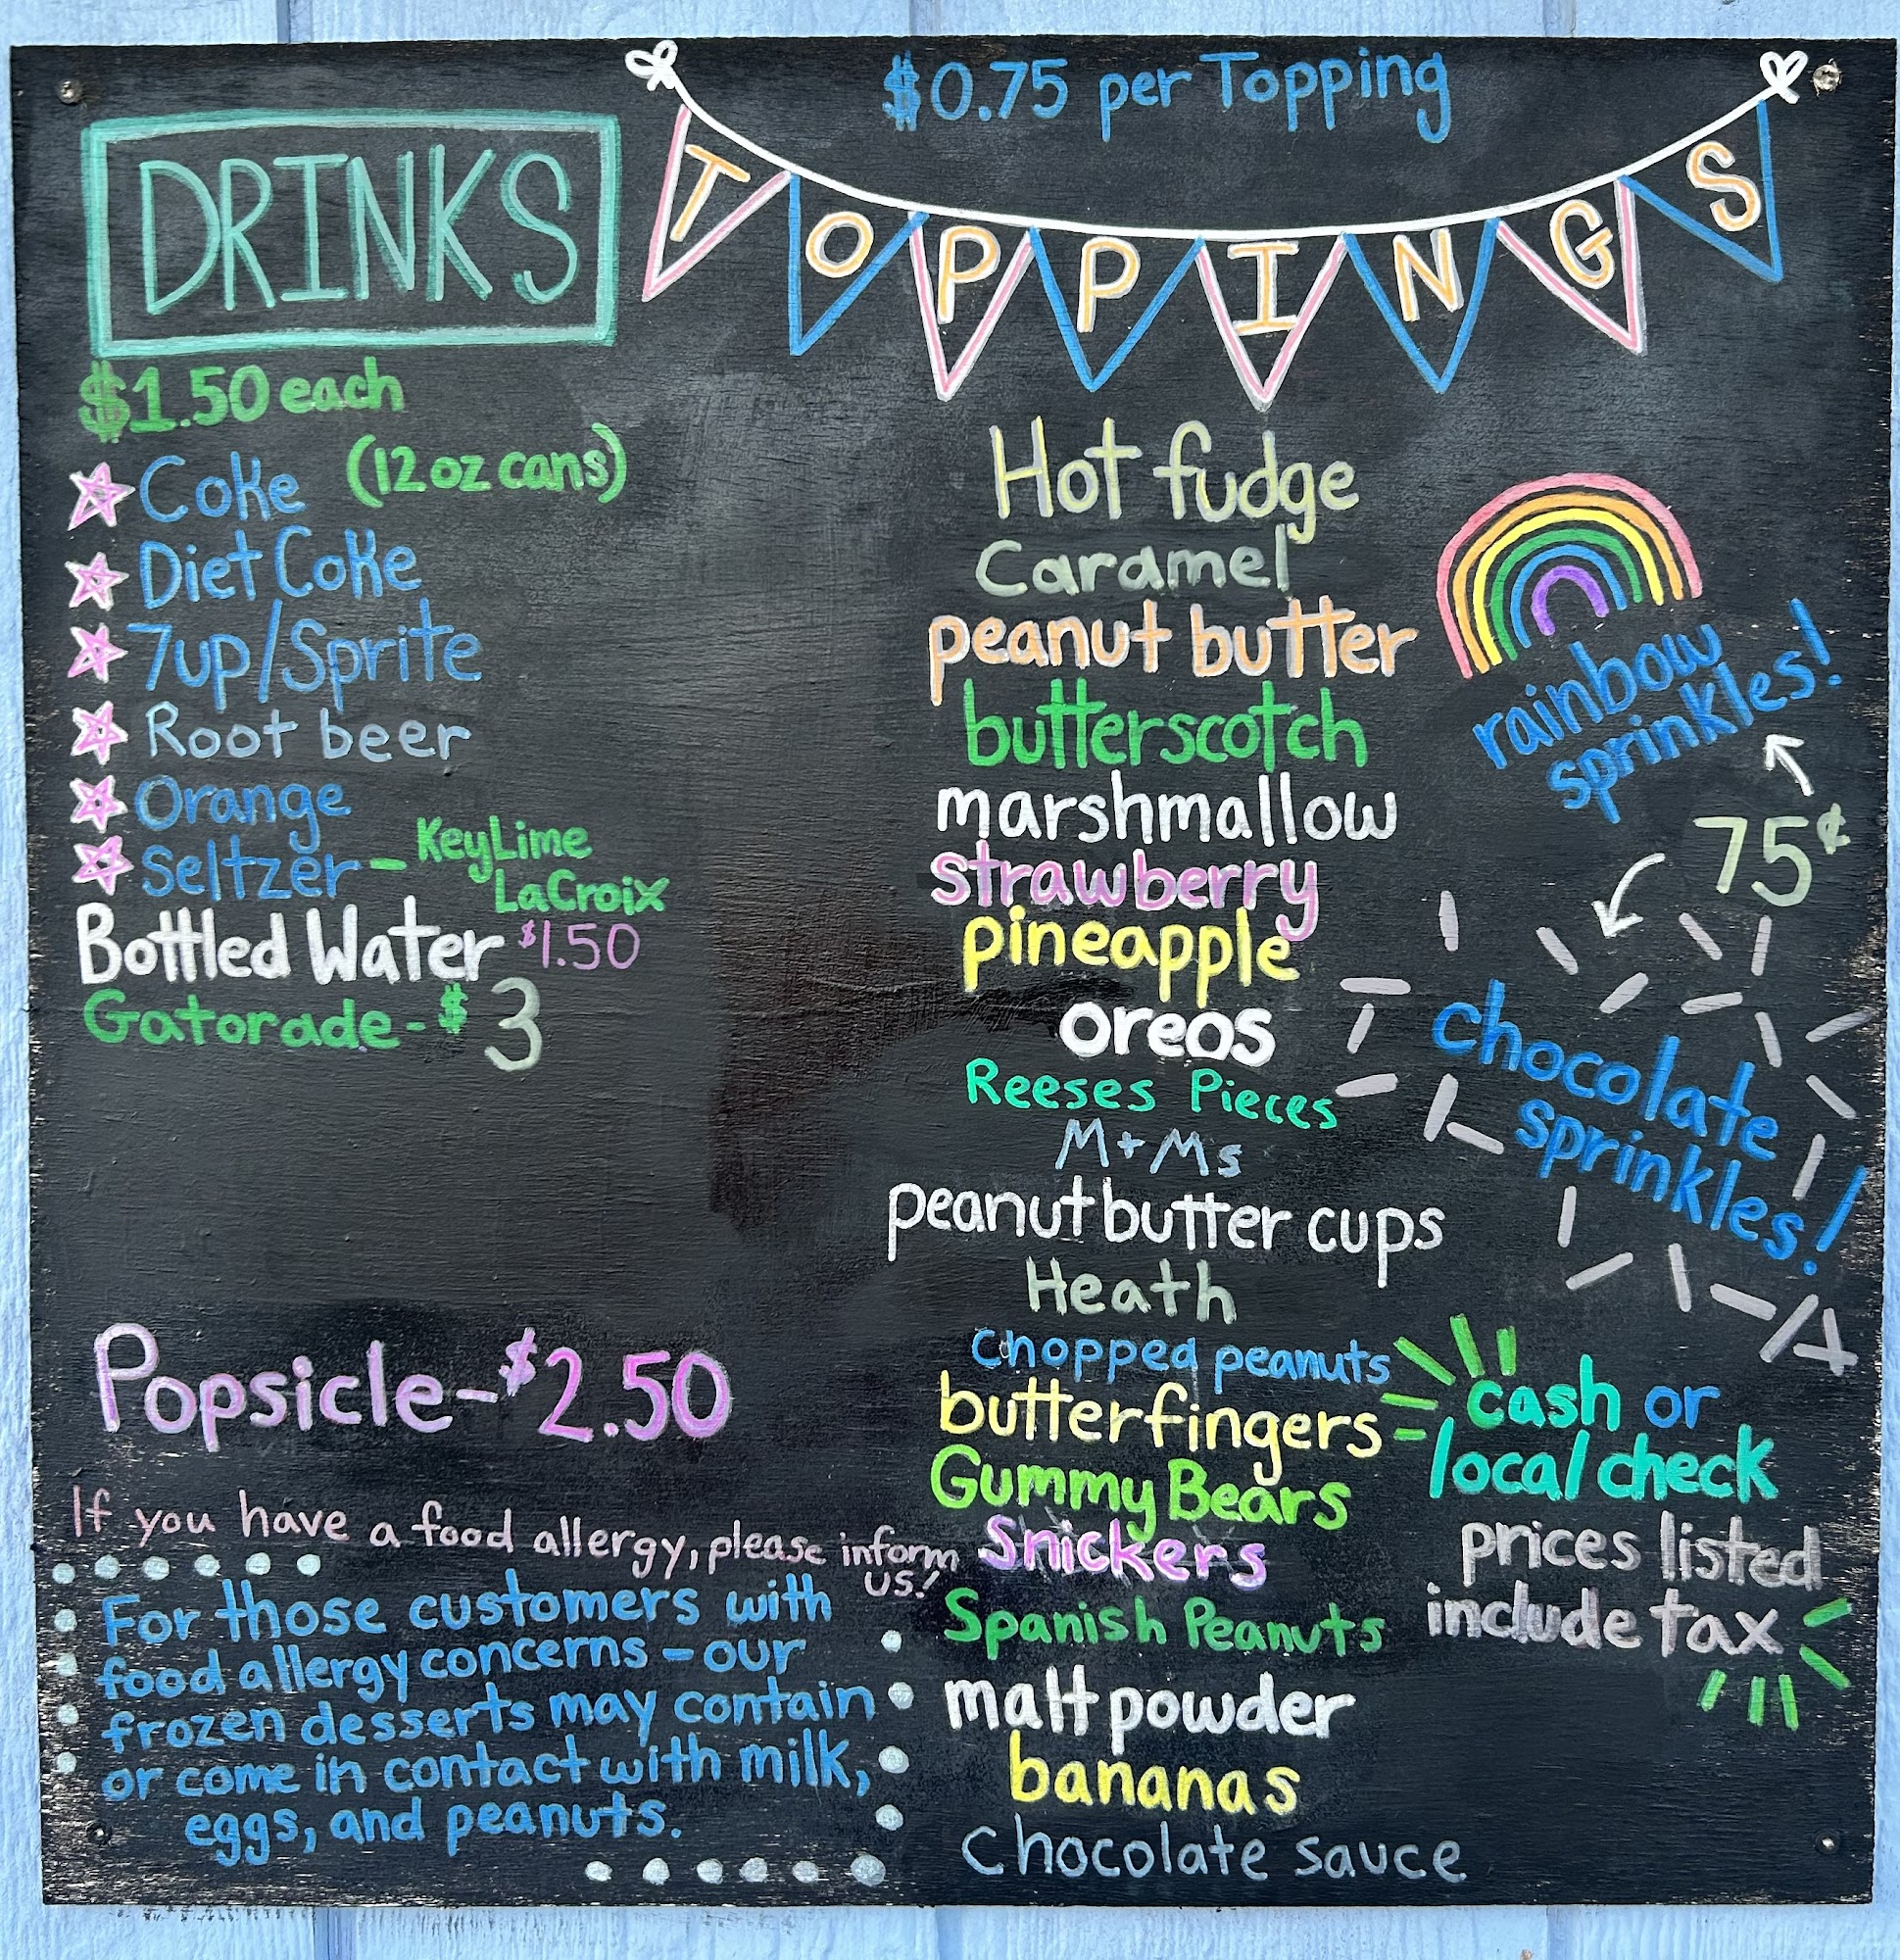 DRINKS
$1.50 each
(12 oz cans)
Coke
Diet Coke
7up/Sprite
Root beer
Orange
Seltzer - Key Lime
LaCroix
Bottled Water $1.50
Gatorade - $3
Popsicle - $2.50
If you have a food allergy, please inform
us!
For those customers with
food allergy concerns - our
frozen desserts may contain
or come in contact with milk,
eggs, and peanuts.
$0.75 per Topping
TOPPINGS
Hot fudge
Caramel
peanut butter
butterscotch
marshmallow
strawberry
pineapple
oreos
Reeses Pieces
M+Ms
peanut butter cups
Heath
Chopped peanuts
butterfingers
Gummy Bears
Snickers
Spanish Peanuts
malt powder
bananas
Chocolate sauce
rainbow
sprinkles!
75¢
chocolate
sprinkles!
cash or
local check
prices listed
include tax